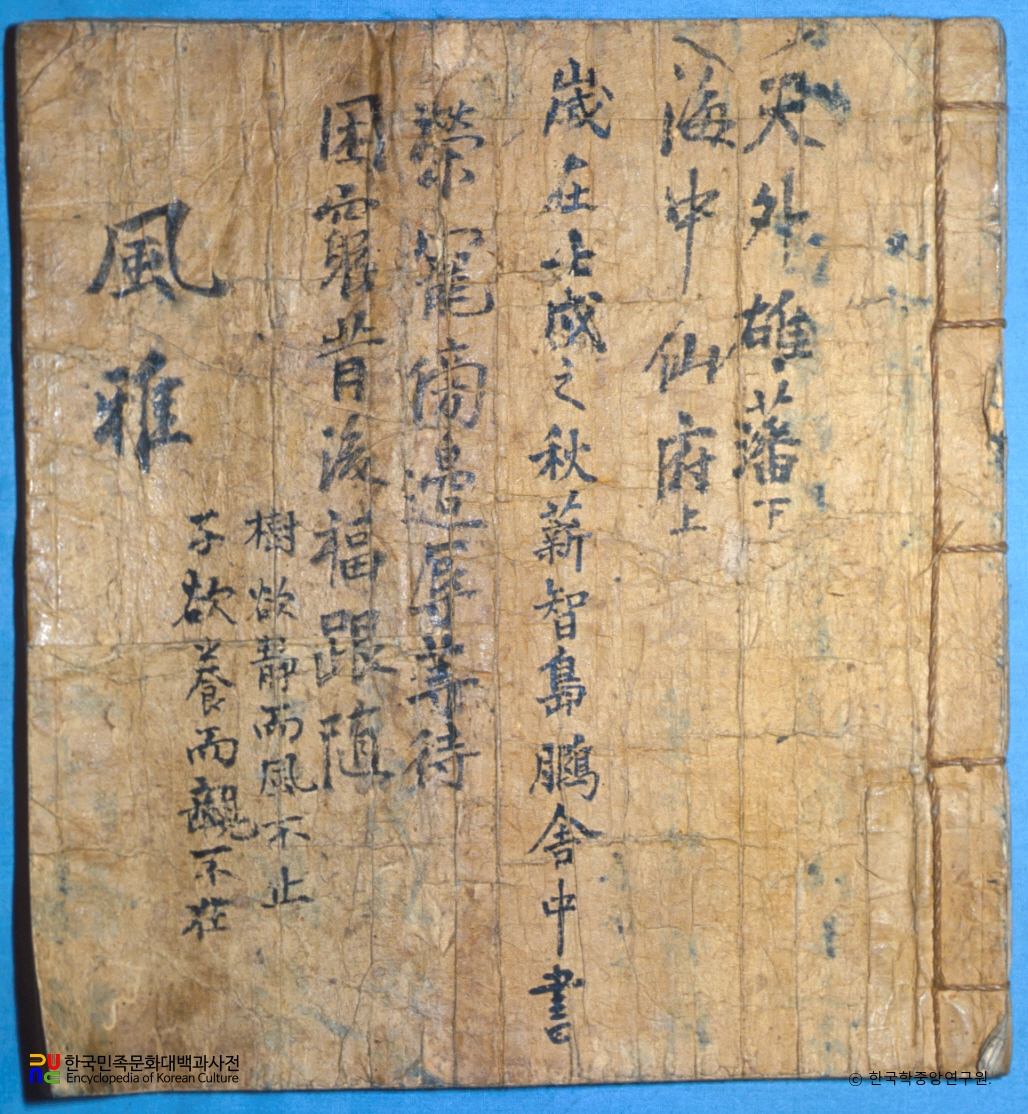 天外雄藩下
海中仙府上
歲在戊之秋薪智島鵬舍中書
榮寵傍邊辱等待
困窮背後福跟隨
樹欲靜而風不止
子欲養而親不在
風雅
한국민족문화대백과사전
Encyclopedia of Korean Culture
© 한국학중앙연구원.